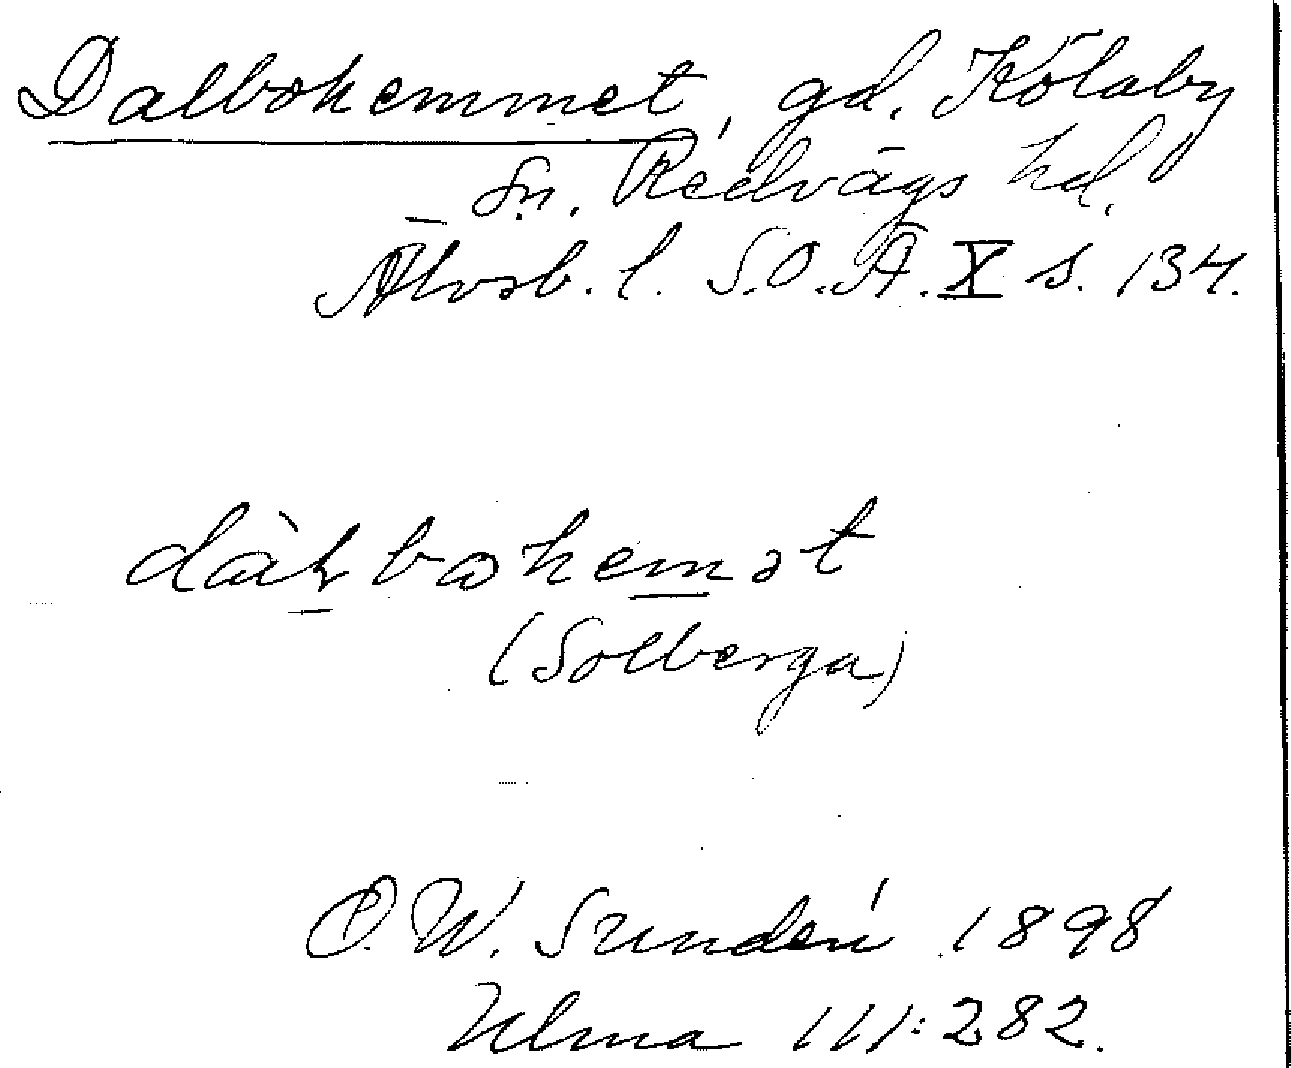 Dalbohemmet, gd. Kölaby
sn. Redvägs hd.
Älvsb. l. S.O.Ä. X s. 134.
dàɫbωhemət
(Solberga)
O. W. Sundén 1898
Ulma 111:282.